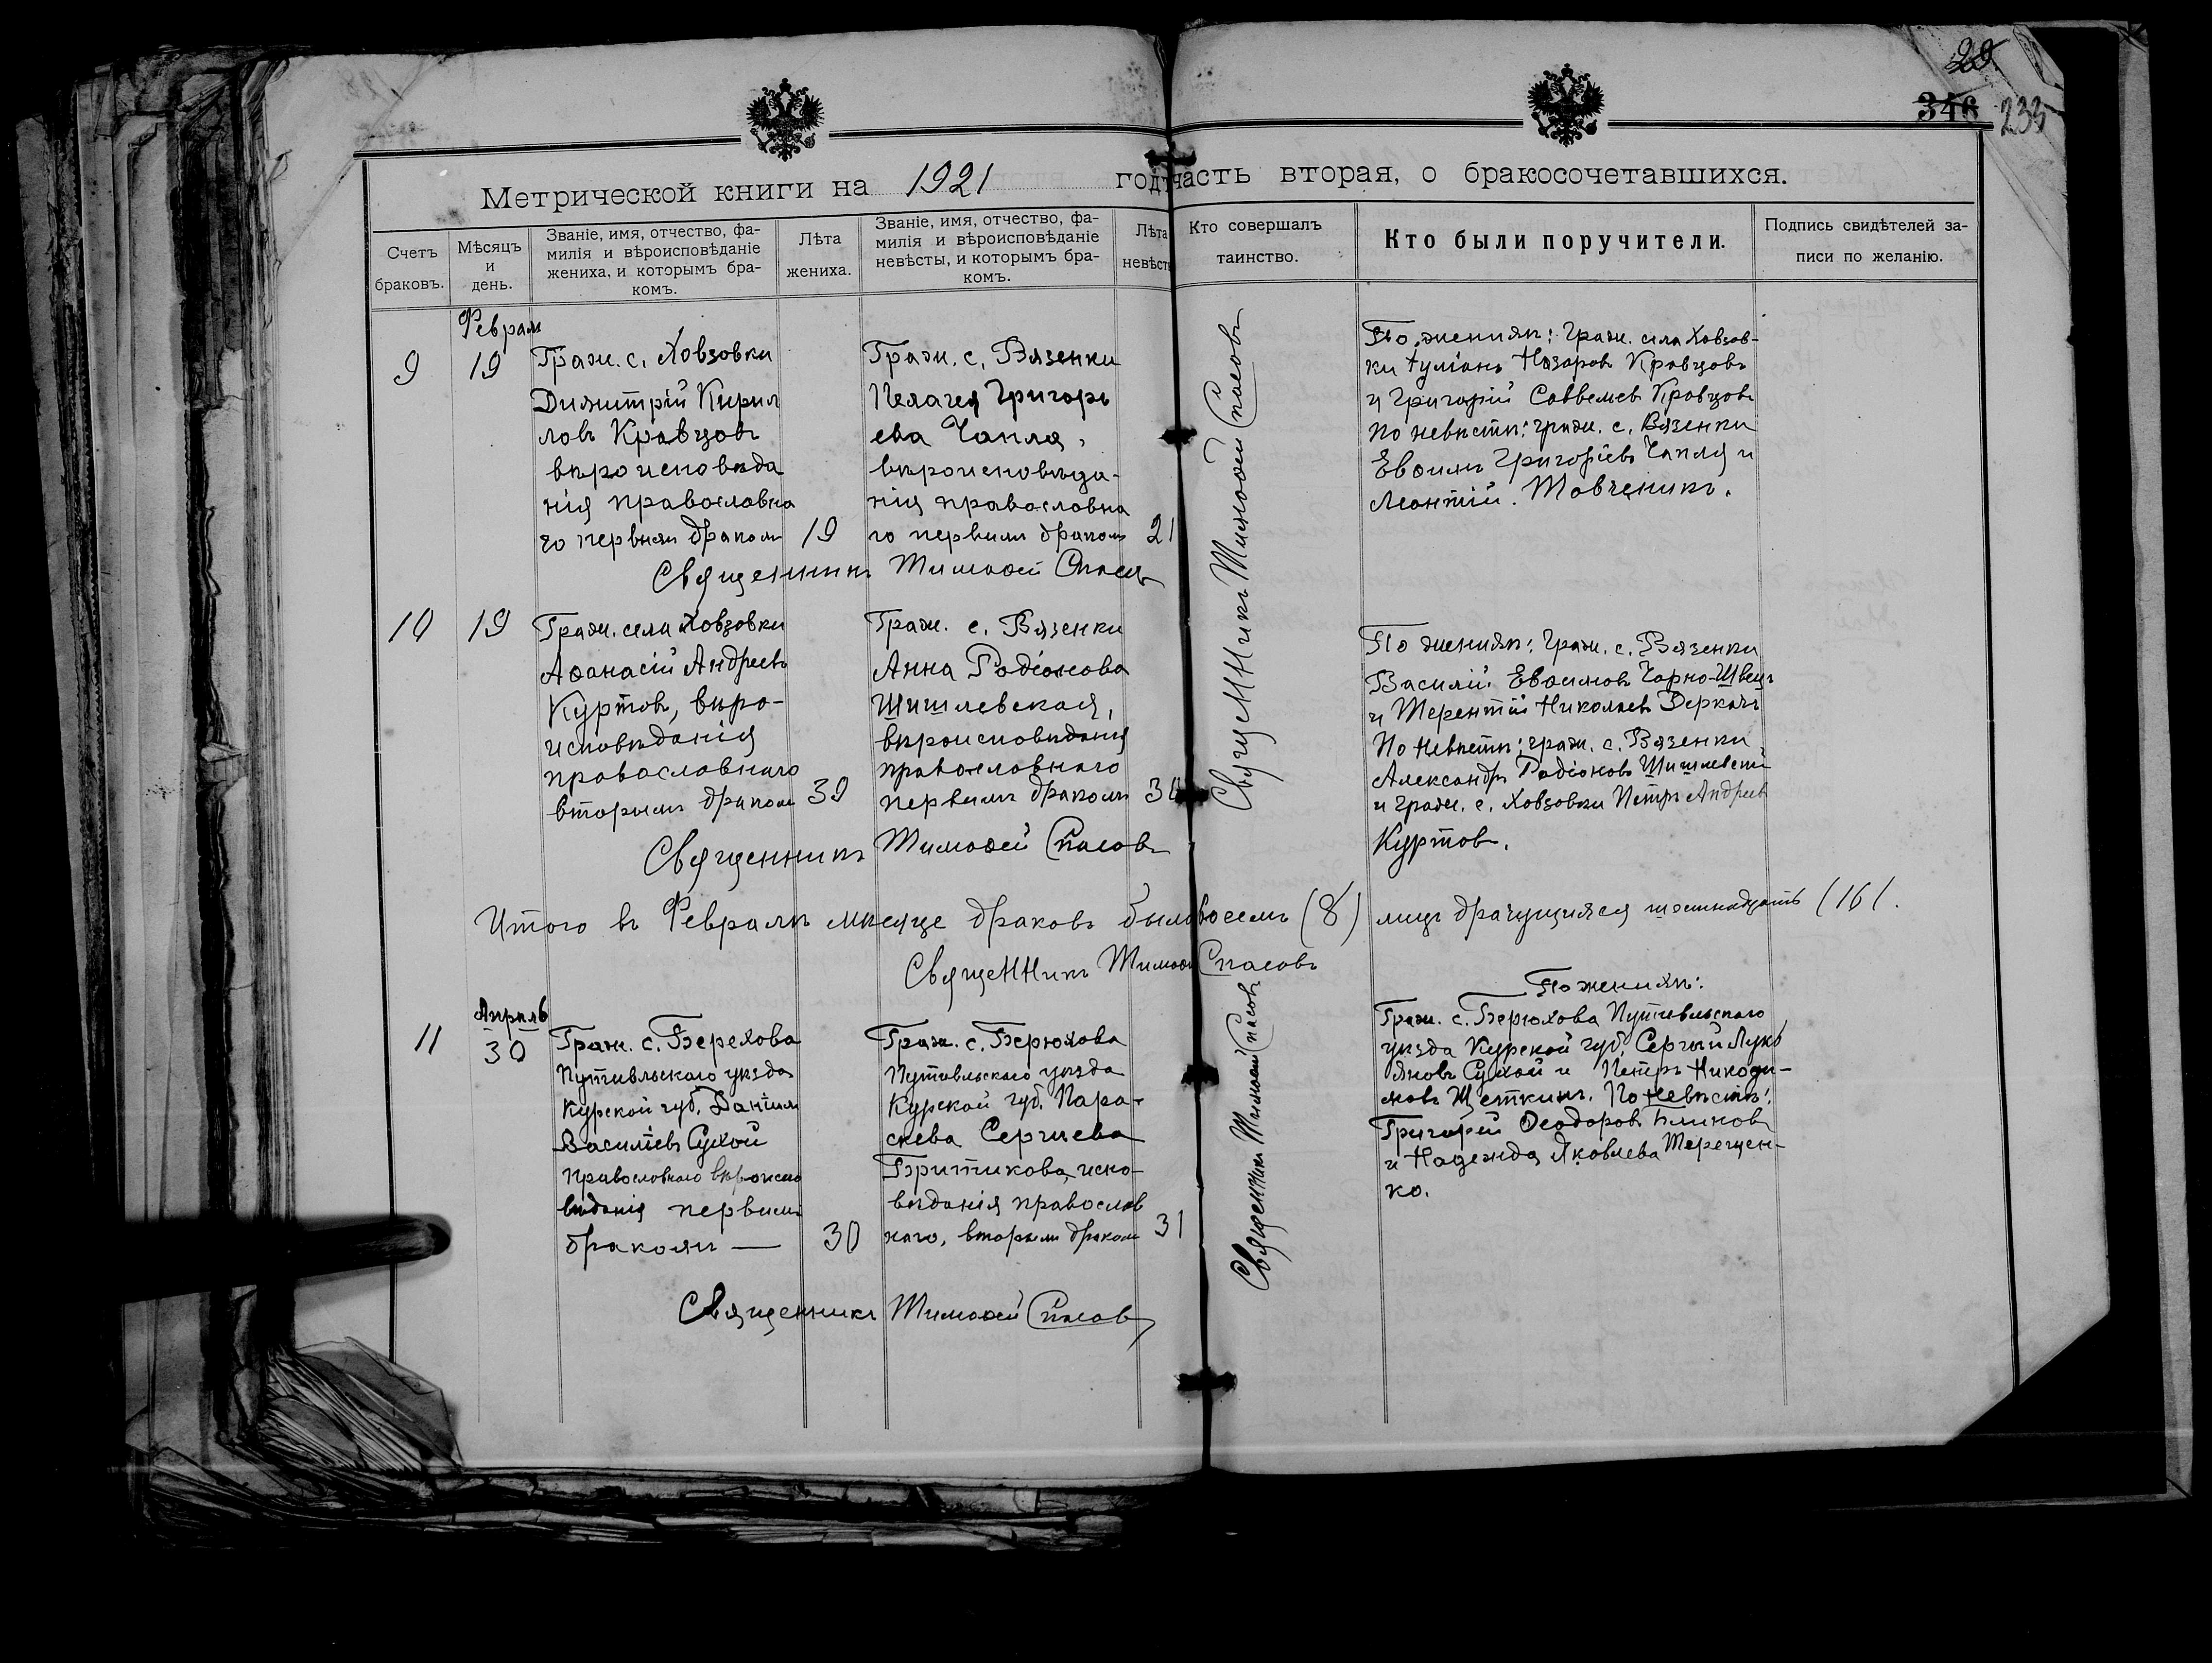 29
346 233
Метрической книги на 1921 годъ часть вторая, о бракосочетавшихся.
Счетъ
браковъ.
Мѣсяцъ
и
день.
Званіе, имя, отчество, фа-
милія и вѣроисповѣданіе
жениха, и которымъ бра-
комъ.
Лѣта
жениха.
Званіе, имя, отчество, фа-
милія и вѣроисповѣданіе
невѣсты, и которымъ бра-
комъ.
Лѣта
невѣсты
Кто совершалъ
таинство.
Кто были поручители.
Подпись свидѣтелей за-
писи по желанію.
9
Феврал
19
Граж. с. Ховзовки
Димитрій Кирил
ловъ Кравцовъ
вѣроисповѣда
нія православна
го первым браком
19
Граж. с. Вязенки
Пелагея Григорь
ева Чапля,
вѣроисповѣда-
нія православна
го первым браком
21
Священникъ Тимоѳей Спасовъ
По женихѣ: Граж. села Ховзов-
ки Іуліанъ Назаровъ Кравцовъ
и Григорій Савельев Кравцовъ
По невѣстѣ: граж. с. Вязенки
Евѳимъ Григорьевъ Чапля и
Леонтій Товченикъ.
Священникъ Тимоѳей Спасовъ
10
19
Граж. села Ховзовки
Аѳанасій Андреевъ
Куртовъ, вѣро-
исповѣданія
православнаго
вторымъ браком
39
Граж. с. Вязенки
Анна Родіонова
Шишлевская,
вѣроисповѣданія
православнаго
первымъ бракомъ
Священникъ Тимоѳей Спасовъ
По женихѣ: Граж. с. Вязенки
Василій Евѳимовъ Чорно-Швецъ
и Терентій Николаевъ Деркачъ
По невѣстѣ: граж. с. Вязенки
Александръ Родіоновъ Шишлевскій
и граж. с. Ховзовки Петръ Андреев
Куртовъ.
Итого въ Февралѣ мѣсяце браковъ было восемь (8) лицъ брачущихся шестнадцать (16).
Священникъ Тимоѳей Спасовъ
11
Апрѣль
30
Граж. с. Берехова
Путивльскаго уѣзда
Курской губ. Даніилъ
Васильевъ Сухой
православнаго вѣроиспо
вѣданія первымъ
бракомъ —
30
Граж. с. Берюхова
Путивльскаго уѣзда
Курской губ. Пара-
скева Сергиева
Бритикова, испо-
вѣданія православ
наго, вторым браком
31
Священникъ Тимоѳей Спасовъ
По женихѣ:
Граж. с. Берюхова Путивльскаго
уѣзда Курской губ. Сергѣй Лукь
яновъ Сухой и Петръ Никоди-
мовъ Щеткинъ. По Невѣстѣ:
Григорій Ѳеодоровъ Блиновъ
и Надежда Яковлева Терещен-
ко.
Священникъ Тимоѳей Спасовъ